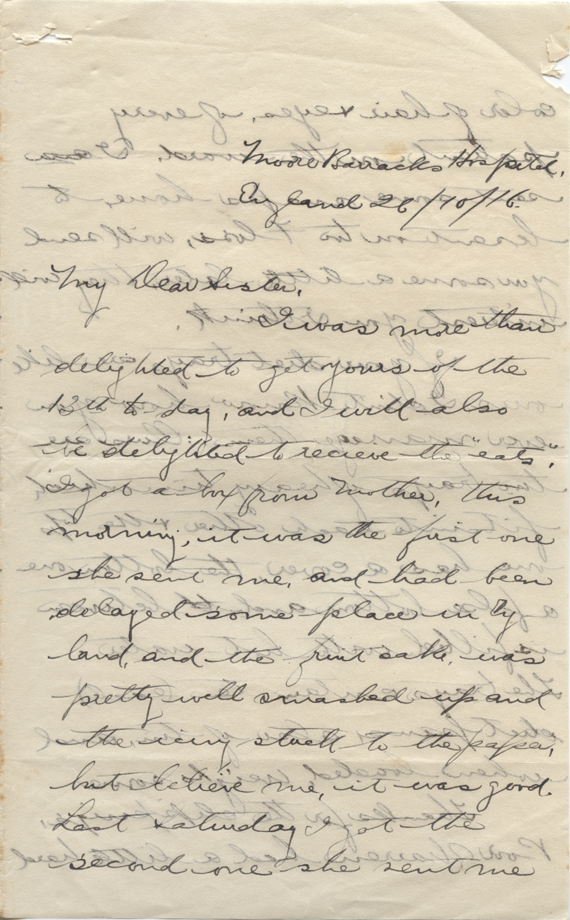 Moore Barracks Hospital,
England 26/10/16.
My Dear Sister,
I was more than
delighted to get yours of the
13th to day, and I will also
be delighted to recieve the "eats",
I got a box from Mother, this
morning, it was the first one
she sent me, and had been
delayed some place in Eng
land, and the fruit cake, was
pretty well smashed up and
the icing stuck to the paper,
but believe me, it was good.
Last Saturday I got the
second one she sent me